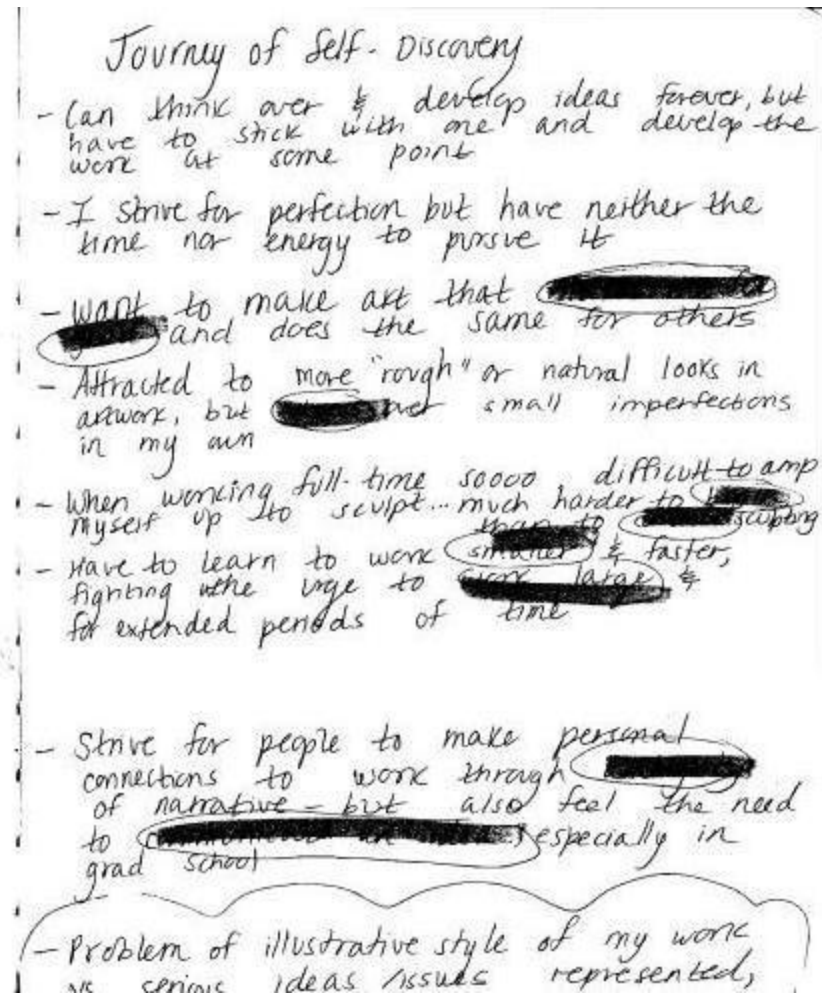 Journey of Self-Discovery
- Can think over & develop ideas forever, but
have to stick with one and develop the
work at some point
- I strive for perfection but have neither the
time nor energy to pursue it
- want to make art that
and does the same for others
- Attracted to more "rough" or natural looks in
artwork, but over small imperfections
in my own
- When working full-time soooo difficult to amp
myself up to sculpt... much harder to
than to sculpting
- Have to learn to work smaller & faster,
fighting the urge to work large &
for extended periods of time
- Strive for people to make personal
connections to work through
of narrative - but also feel the need
to especially in
grad school
- Problem of illustrative style of my work
vs serious ideas/issues represented,